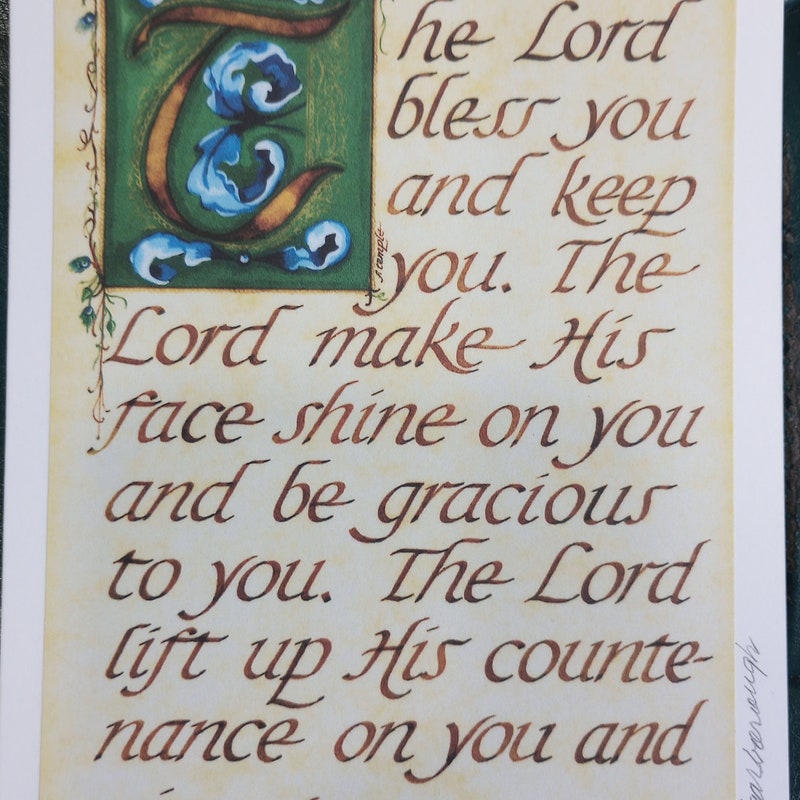 The Lord
bless you
and keep
you. The
Lord make His
face shine on you
and be gracious
to you. The Lord
lift up His counte-
nance on you and